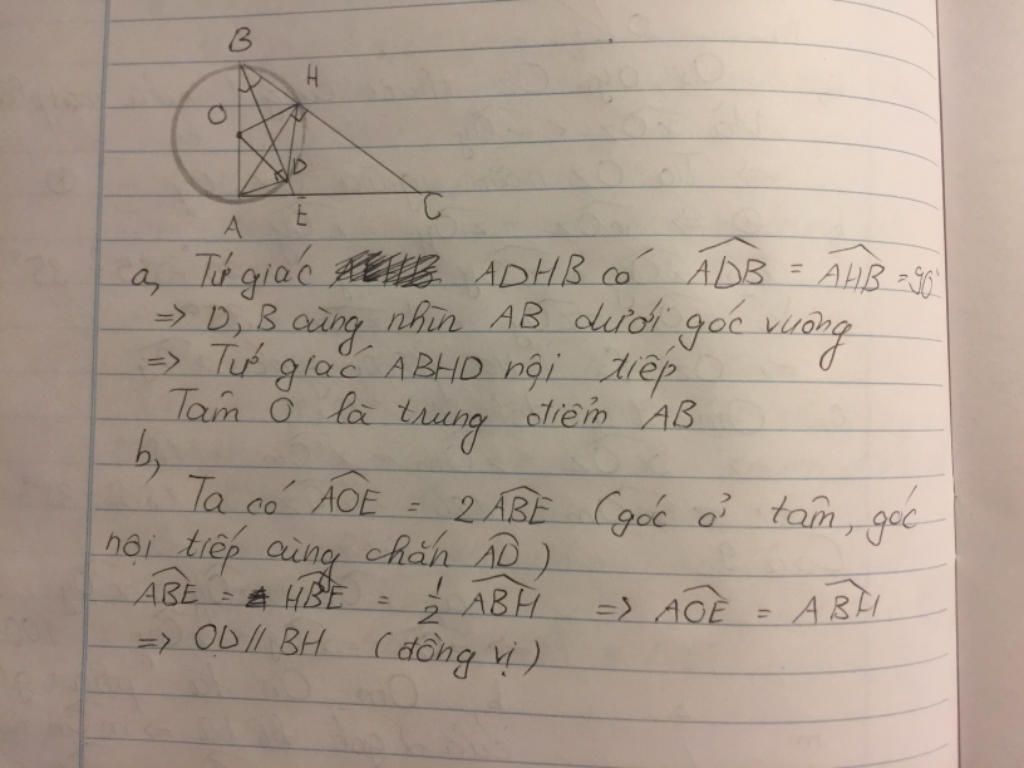 B
H
O
D
A
E
C
a, Tứ giác ADHB có \widehat{ADB} = \widehat{AHB} = 90°
=> D, B cùng nhìn AB dưới góc vuông
=> Tứ giác ABHD nội tiếp
Tâm O là trung điểm AB
b,
Ta có \widehat{AOE} = 2\widehat{ABE} (góc ở tâm, góc
nội tiếp cùng chắn \widehat{AD})
\widehat{ABE} = \widehat{HBE} = \frac{1}{2} \widehat{ABH} => \widehat{AOE} = \widehat{ABH}
=> OD // BH (đồng vị)